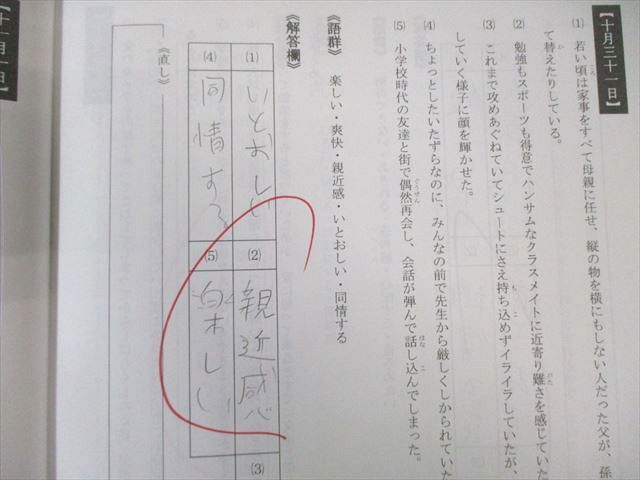 【十月三十一日】
(1) 若い頃は家事をすべて母親に任せ、縦の物を横にもしない人だった父が、孫
て替えたりしている。
(2) 勉強もスポーツも得意でハンサムなクラスメイトに近寄り難さを感じていた
(3) これまで攻めあぐねていてシュートにさえ持ち込めずイライラしていたが、
していく様子に顔を輝かせた。
(4) ちょっとしたいたずらなのに、みんなの前で先生から厳しくしかられていた
(5) 小学校時代の友達と街で偶然再会し、会話が弾んで話し込んでしまった。
《語群》 楽しい・爽快・親近感・いとおしい・同情する
《解答欄》
(1) いとおしい
(2) 親近感
(3)
(4) 同情する
(5) 楽しい
《直し》
【十一月一日】